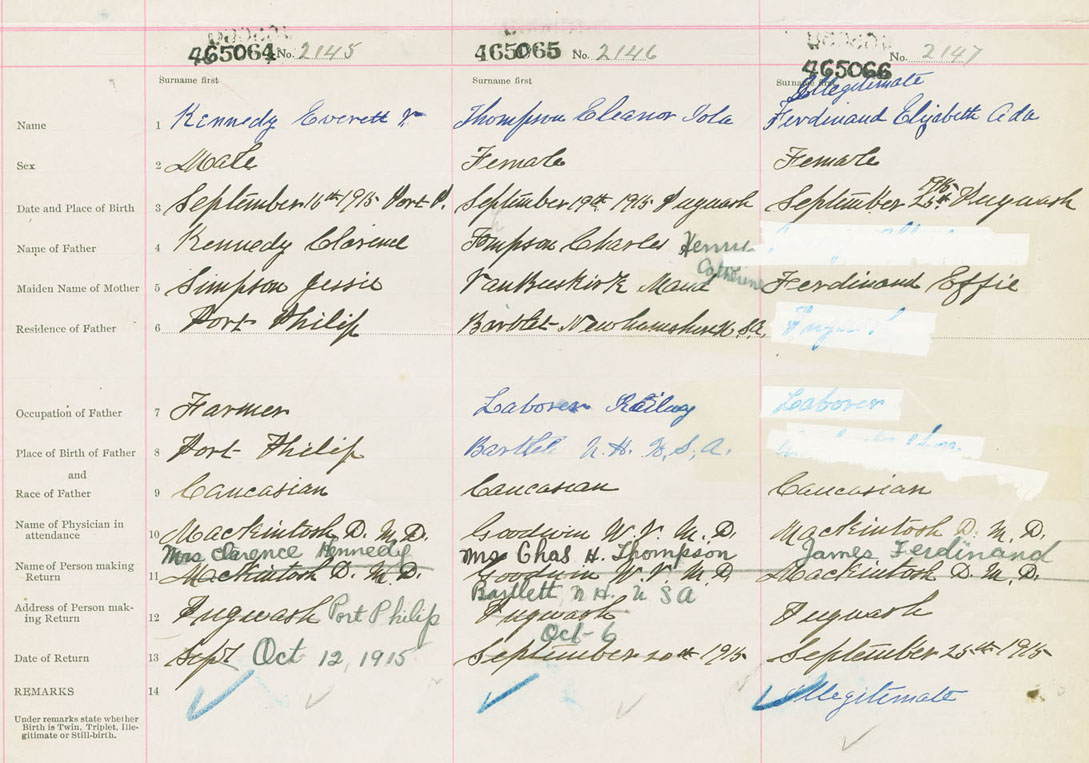 465064 No. 2145 465065 No. 2146 465066 No. 2147
Surname first Surname first Surname first
Illegitimate
Name 1 Kennedy Everett Thompson Eleanor Iola Ferdinand Elizabeth Ada
Sex 2 Male Female Female
1915
Date and Place of Birth 3 September 16th 1915 Port P. September 19th 1915 Pugwash September 25th Pugwash
Name of Father 4 Kennedy Clarence Tompson Charles Henry
Catherine
Maiden Name of Mother 5 Simpson Jessie VanBuskirk Maud Ferdinand Effie
Residence of Father 6 Port Philip Bartlet New
Occupation of Father 7 Farmer Laborer Railway Laborer
Place of Birth of Father 8 Port Philip Bartlett N. H. U. S. A.
and
Race of Father 9 Caucasian Caucasian Caucasian
Name of Physician in
attendance 10 Mackintosh D. M. D. Goodwin W. V. M. D. Mackintosh D. M. D.
Mrs Clarence Kennedy Mrs Chas H. Thompson James Ferdinand
Name of Person making
Return 11 Mackintosh D. M. D. Goodwin W. V. M. D Mackintosh D. M. D.
Bartlett N. H. U S A
Address of Person mak-
ing Return 12 Pugwash Port Philip Pugwash Pugwash
Oct - 6
Date of Return 13 Sept Oct 12, 1915 September 20th 1915 September 25th 1915
REMARKS 14 Illegitemate
Under remarks state whether
Birth is Twin, Triplet, Ille-
gitimate or Still-birth.